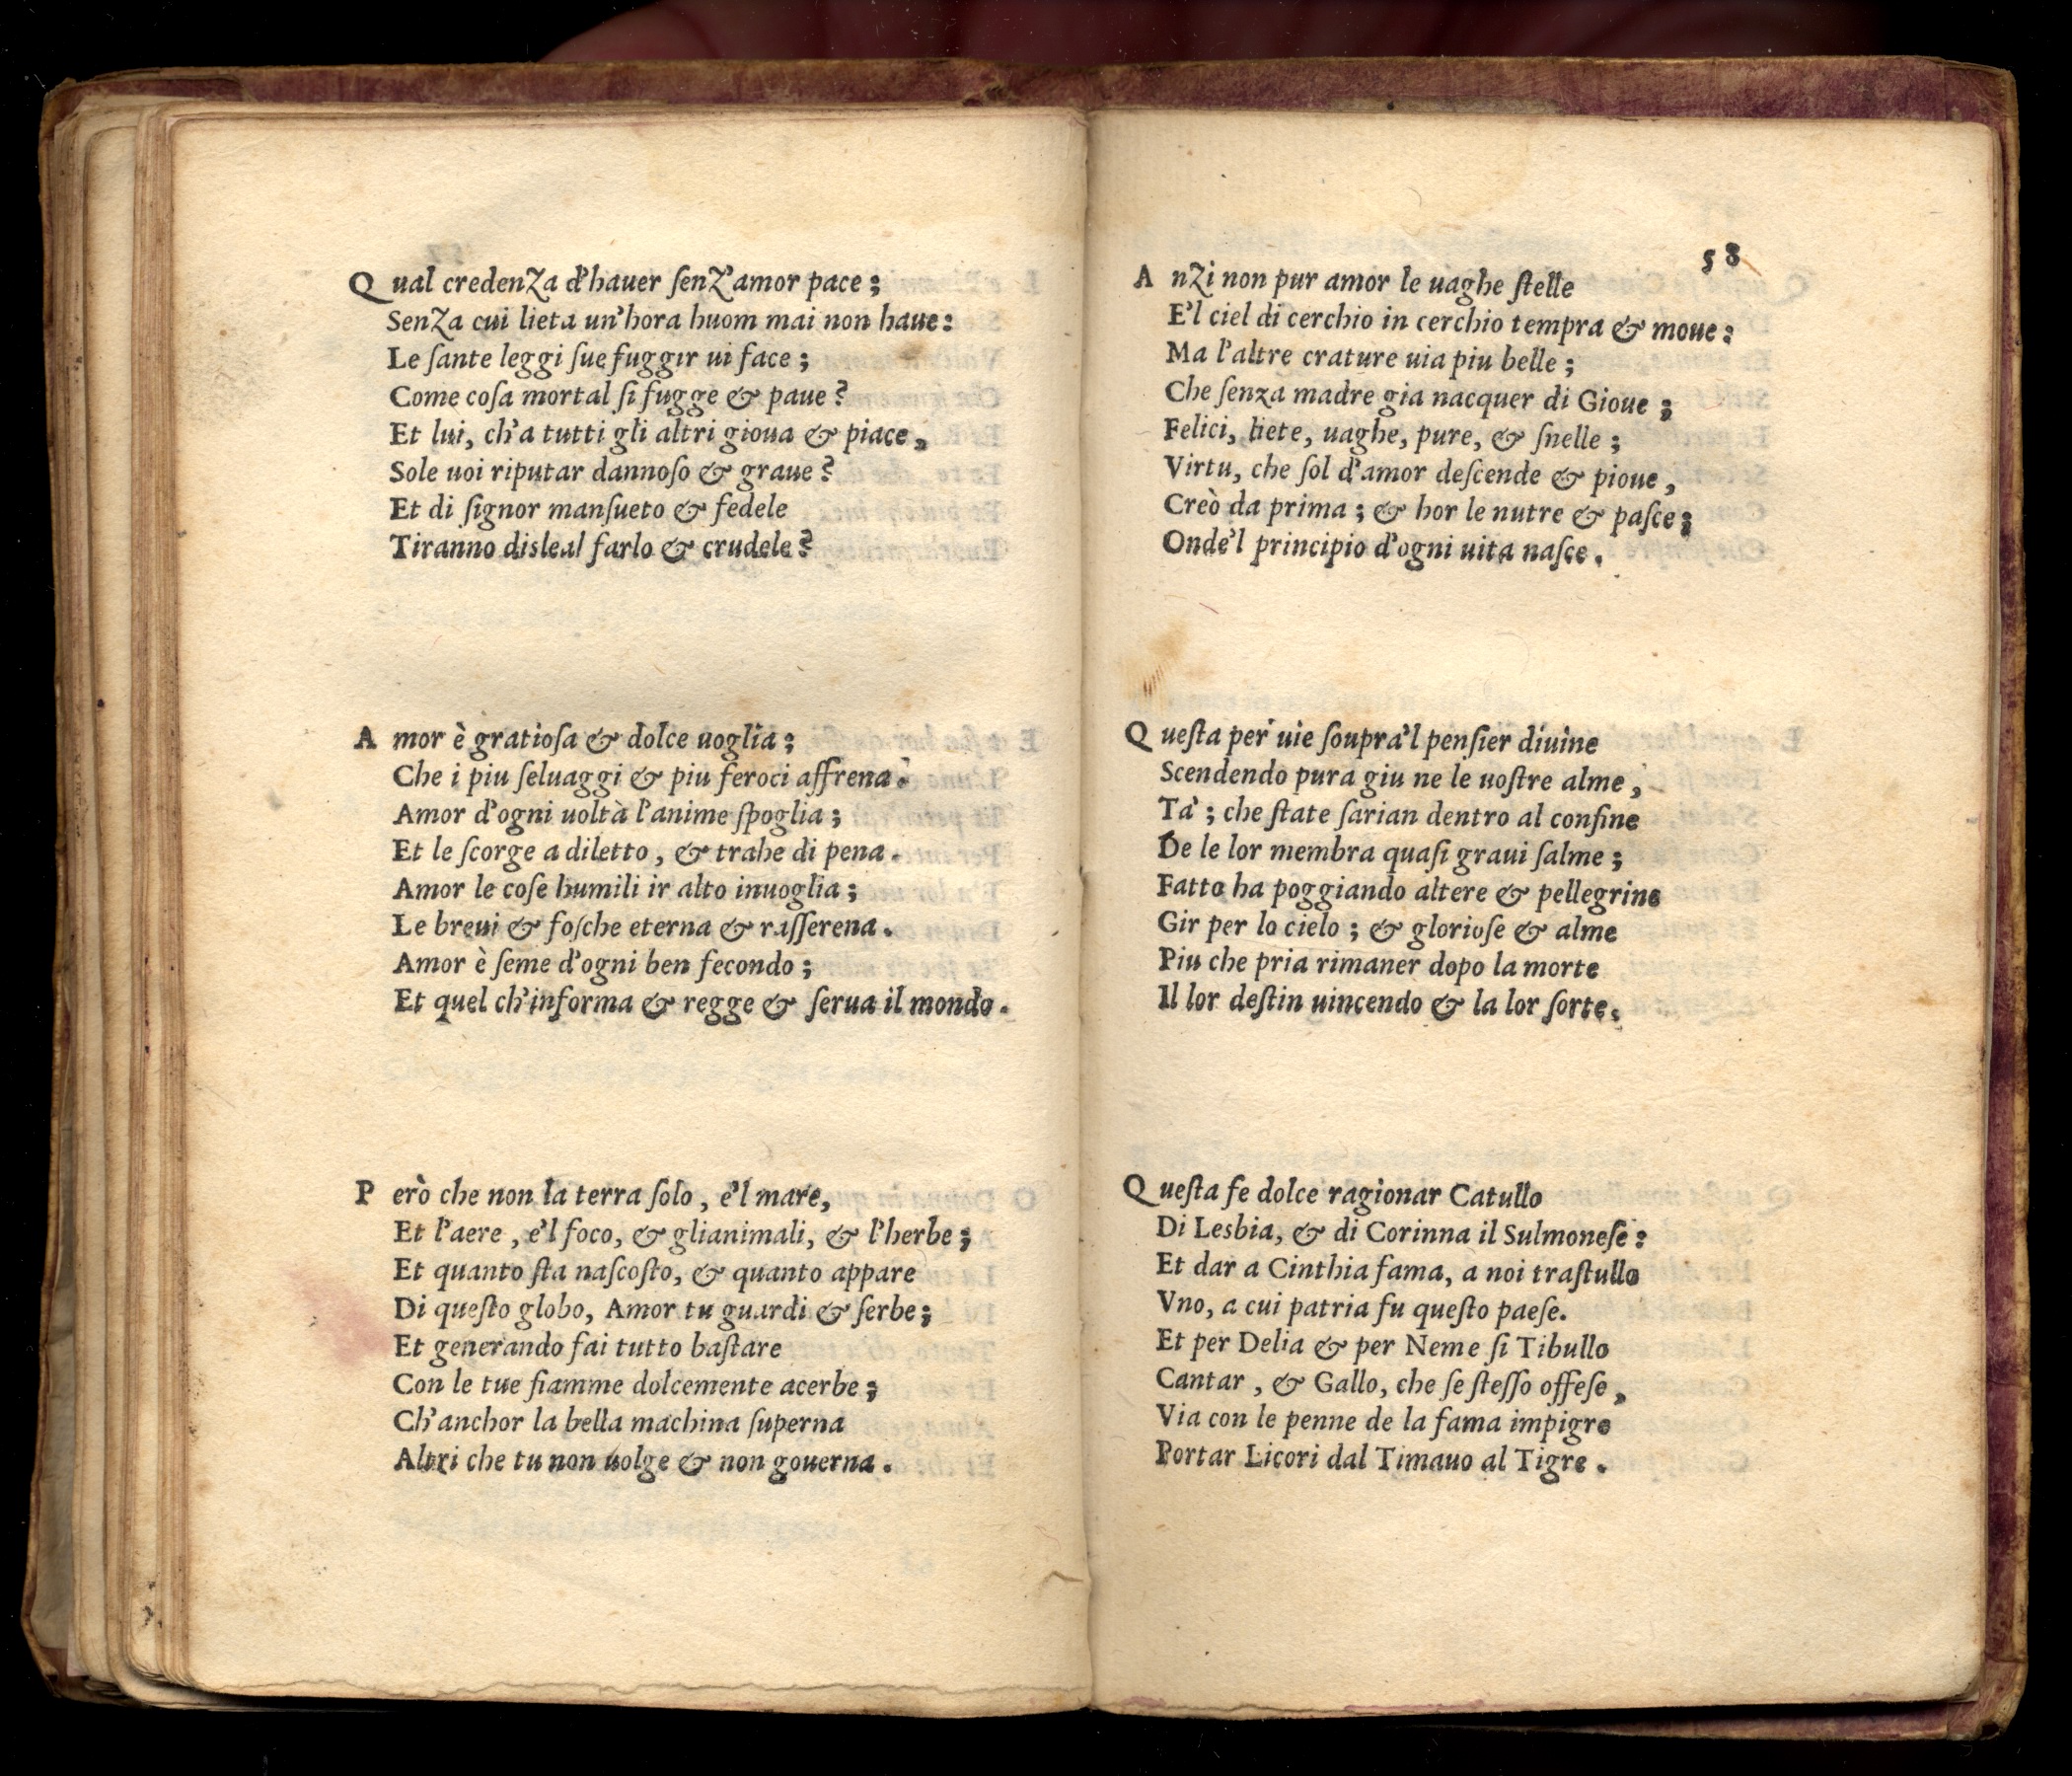 Qual credenza d'hauer ſenz'amor pace;
Senza cui lieta un'hora huom mai non haue:
Le ſante leggi ſue fuggir ui face;
Come coſa mortal ſi fugge & paue?
Et lui, ch'a tutti gli altri gioua & piace,
Sole uoi riputar dannoſo & graue?
Et di ſignor manſueto & fedele
Tiranno disleal farlo & crudele?
Amor è gratioſa & dolce uoglia;
Che i piu ſeluaggi & piu feroci affrena.
Amor d'ogni uoltà l'anime ſpoglia;
Et le ſcorge a diletto, & trahe di pena.
Amor le coſe humili ir alto inuoglia;
Le breui & foſche eterna & raſſerena.
Amor è ſeme d'ogni ben fecondo;
Et quel ch'informa & regge & ſerua il mondo.
Però che non la terra ſolo, e'l mare,
Et l'aere, e'l foco, & glianimali, & l'herbe;
Et quanto ſta naſcoſto, & quanto appare
Di queſto globo, Amor tu guardi & ſerbe;
Et generando fai tutto baſtare
Con le tue fiamme dolcemente acerbe;
Ch'anchor la bella machina ſuperna
Altri che tu non uolge & non gouerna.
58
Anzi non pur amor le uaghe ſtelle
E'l ciel di cerchio in cerchio tempra & moue:
Ma l'altre crature uia piu belle;
Che ſenza madre gia nacquer di Gioue;
Felici, liete, uaghe, pure, & ſnelle;
Virtu, che ſol d'amor deſcende & pioue,
Creò da prima; & hor le nutre & paſce;
Onde'l principio d'ogni uita naſce.
Queſta per uie ſoupra'l penſier diuine
Scendendo pura giu ne le uoſtre alme,
Ta'; che ſtate ſarian dentro al confine
De le lor membra quaſi graui ſalme;
Fatto ha poggiando altere & pellegrine
Gir per lo cielo; & glorioſe & alme
Piu che pria rimaner dopo la morte
Il lor deſtin uincendo & la lor ſorte.
Queſta fe dolce ragionar Catullo
Di Lesbia, & di Corinna il Sulmoneſe:
Et dar a Cinthia fama, a noi traſtullo
Vno, a cui patria fu queſto paeſe.
Et per Delia & per Neme ſi Tibullo
Cantar, & Gallo, che ſe ſteſſo offeſe,
Via con le penne de la fama impigre
Portar Licori dal Timauo al Tigre.